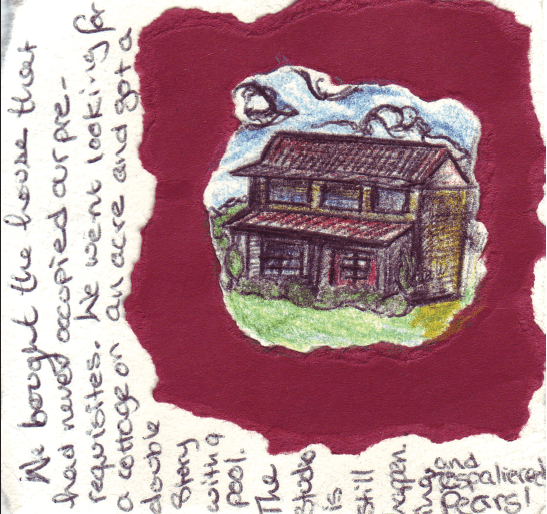 We bought the house that
had never occupied our pre-
requisites. We went looking for
a cottage on an acre and got a
double
story
with a
pool.
The
studio
is
still
happen.
ing
and
espaliered
Pears!